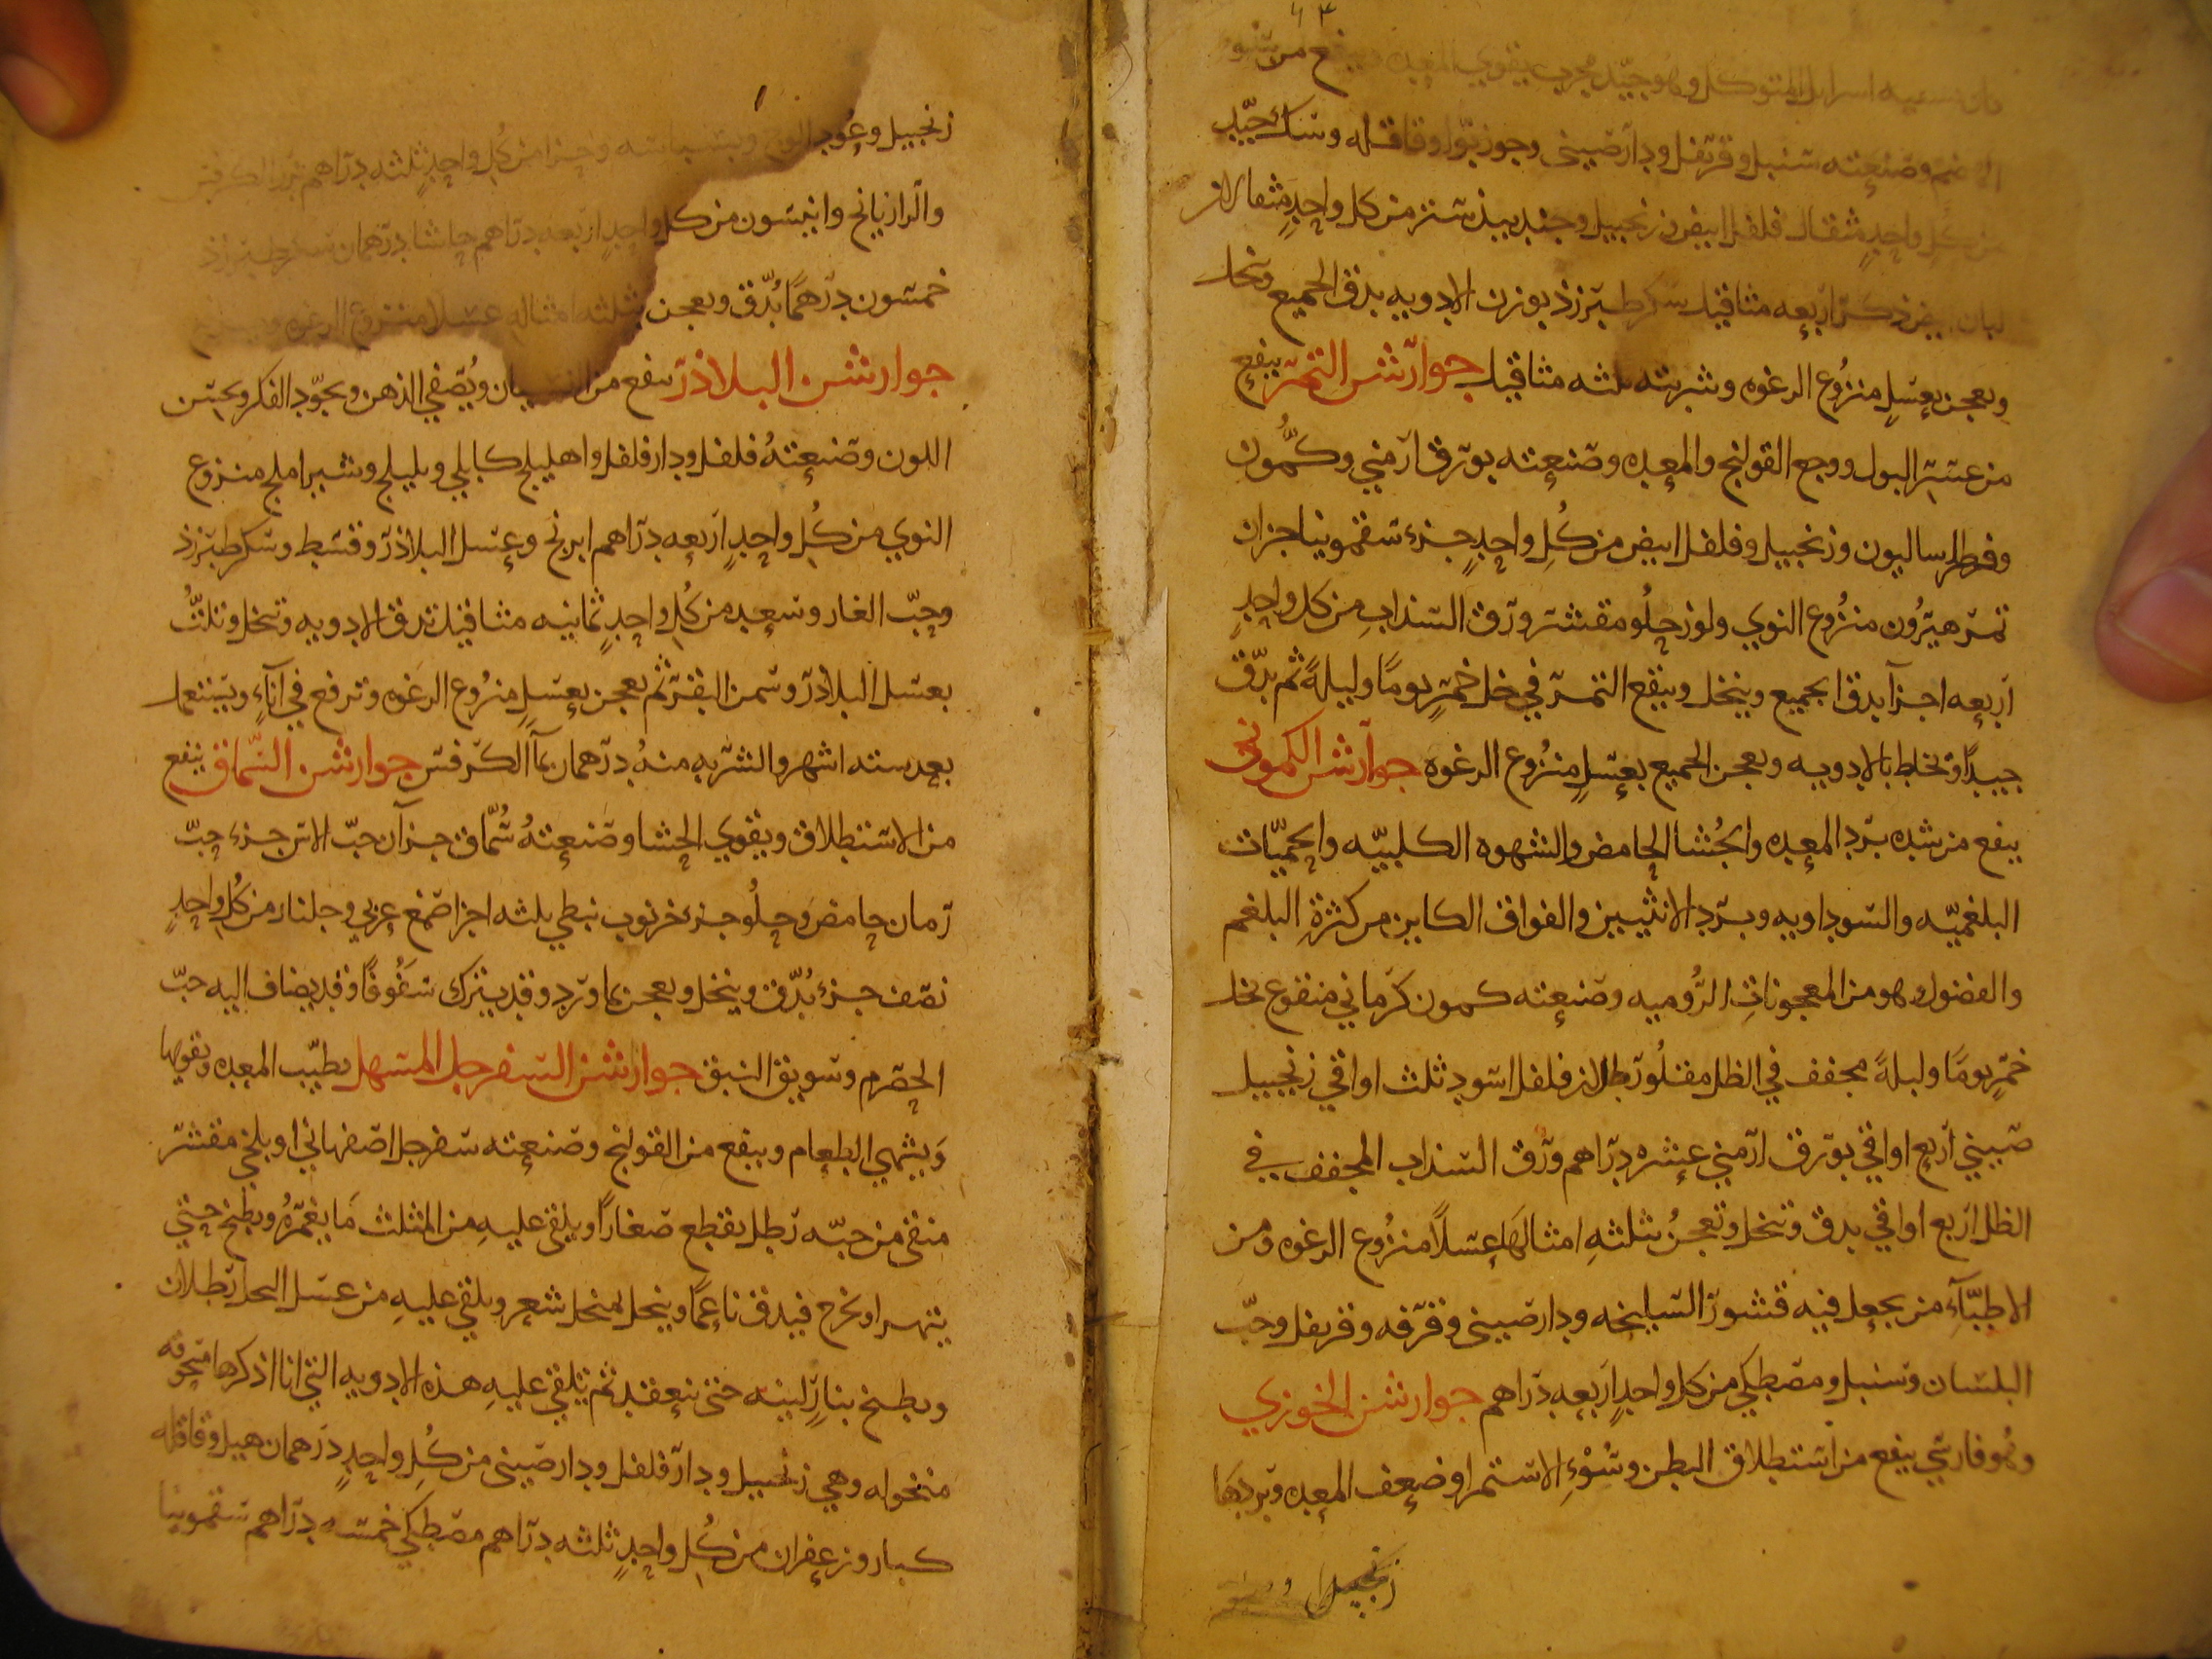 اسرايل المتوكل وهو جيّد مجرب يقوي المعده
وصنعته سنبل وقرنفل ودارصيني وجوزبوّا وقاقله وسك جيّد
من كلِ واحدٍ مثقال فلفل ابيض وزنجبيل وجندبيدستر من كل واحدٍ مثقالان
لبان ابيض ذكر اربعه مثاقيل سكر طبرزذ بوزن الادويه يدق الجميع وينخل
ويعجن بعسلٍ منزُوع الرغوه وشربته ثلثه مثاقيل جوارشن التمر ينفع
من عسر البول ووجع القولنج والمعده وصنعته بورق ارمني وكمُّون
وفطراساليون وزنجبيل وفلفل ابيض من كُلِ واحدٍ جزء سقمونيا جزان
تمر هيرُون منزُوع النوي ولوز حِلُو مقشر وورق السنداب من كل واحدٍ
اربعه اجزآ يدق الجميع وينخل وينقع التمر في خل خمرٍ يومًا وليلةً ثم يدّق
جيدًا وتخلط بالادويه ويعجن الجميع بعسلٍ منزُوع الرغوه جوارشن الكموني
ينفع من شده برد المعده والجُشا الحامض والشهوه الكلبيّه والحميّات
البلغميّه والسوداويه وبرد الانثيين والفواق الكاين من كثرةِ البلغم
والفضول وهو من المعجوناتِ الرُّوميه وصنعته كمون كرماني منقوع بخل
خمرٍ يومًا وليلةً مجفف في الظل مقلُو رطلان فلفل اسود ثلث اواقي زنجبيل
صيني اربع اواقي بورق ارمني عشره دراهم ورق السنداب المجفف في
الظل اربع اواقي يدق وتنخل وتعجنُ بثلثهِ امثالهَا عسلاً منزُوع الرغوه ومن
الاطبّآءِ من يجعل فيه قشور السليخه ودارصيني وقرفه وقرنفل وحبّ
البلسان وسنبل ومصطكي من كل واحدٍ اربعه دراهم جوارشن الخوزي
وهُو فارسي ينفع من استطلاق البطن وسُوْءِ الاستمراو ضعف المعده وبردهَا
زنجبيل
زنجبيل وعُود وبسباسه من كُلِ واحدٍ ثلثه دراهم بزر الكرفس
والرازيانج وانيسون من كل واحدٍ اربعه دراهم حاشا درهمان سكر طبرزذ
خمسون درهمًا يُدّق ويعجن بثلثه امثاله عسلا منزوع الرغوه
جوارشن البلاذر ينفع من النسيان ويُصفي الذهن ويجوّد الفكر ويحسن
اللون وصنعتهُ فلفل ودارفلفل واهليلج كابلي وبليلج وشير املج منزوع
النوي من كُلِ واحدٍ اربعه دراهم ابرنج وعسل البلاذر وقسط وسكر طبرزذ
وحبّ الغار وسعد من كُلِ واحدٍ ثمانيه مثاقيل تدق الادويه وتنخل وتلتُّ
بعسل البلاذر وسمن البقر ثم يعجن بعسلٍ منزُوع الرغوه وترفع في آناءٍ ويستعمل
بعد سته اشهر والشربه منهُ درهمان بمآ الكرفس جوارشن السّماق ينفع
من الاستطلاق ويقوي الحشا وصنعتهُ سُمّاق جزآن حبّ الاس جزء حبّ
رمان حامض وحِلُو جزء خرنوب نبطي ثلثه اجزا صمغ عربي وجلنار من كُلِ واحدٍ
نصف جزء يُدّق وينخل ويعجن بماورد وقد يترك سَفُوفًا وقد يضاف اليه حبّ
الحصرم وسويق النبق جوارشن السفرجل المسهل يطيّب المعده ويقويها
وَيشهي الطعام وينفع من القولنج وصنعته سفرجل اصفهاني او بلخي مقشر
منقي من حبّه رطل يقطع صغارًا ويلقي عليهِ من المثلث مَا يغمرُه ويطبخ حتي
يتهرا ويخرج فيدق ناعمًا وينخل بمنخل شعر ويلقي عليهِ من عسل النحل رطلان
ويطبخ بنارٍ لينه حتى ينعقد ثم يلقي عليهِ هذه الادويه التي انا اذكرها مسحوقه
منخوله وهي زنجبيل ودارفلفل ودارصيني من كُلِ واحدٍ درهمان هيل وقاقله
كبار وزعفران من كُلِ واحدٍ ثلثه دراهم مصطكي خمسه دراهم سقمونيا